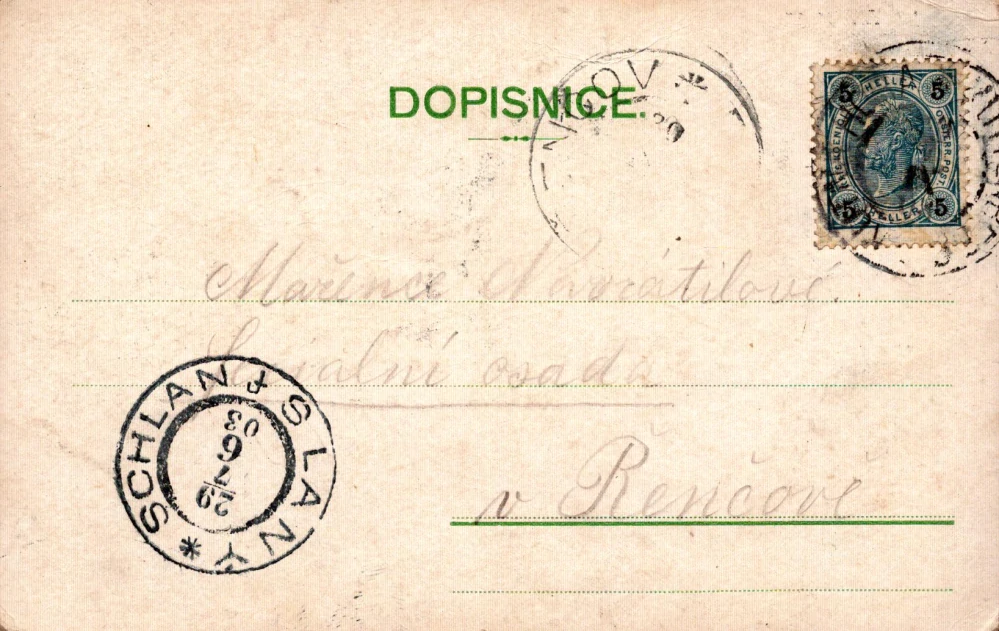 DOPISNICE.
NČOV *
5 HELLER 5
5 HELLER 5
Mařence Navrátilové.
osada
v Řenčově
SCHLAN + SLANÝ *
29/7
6
03